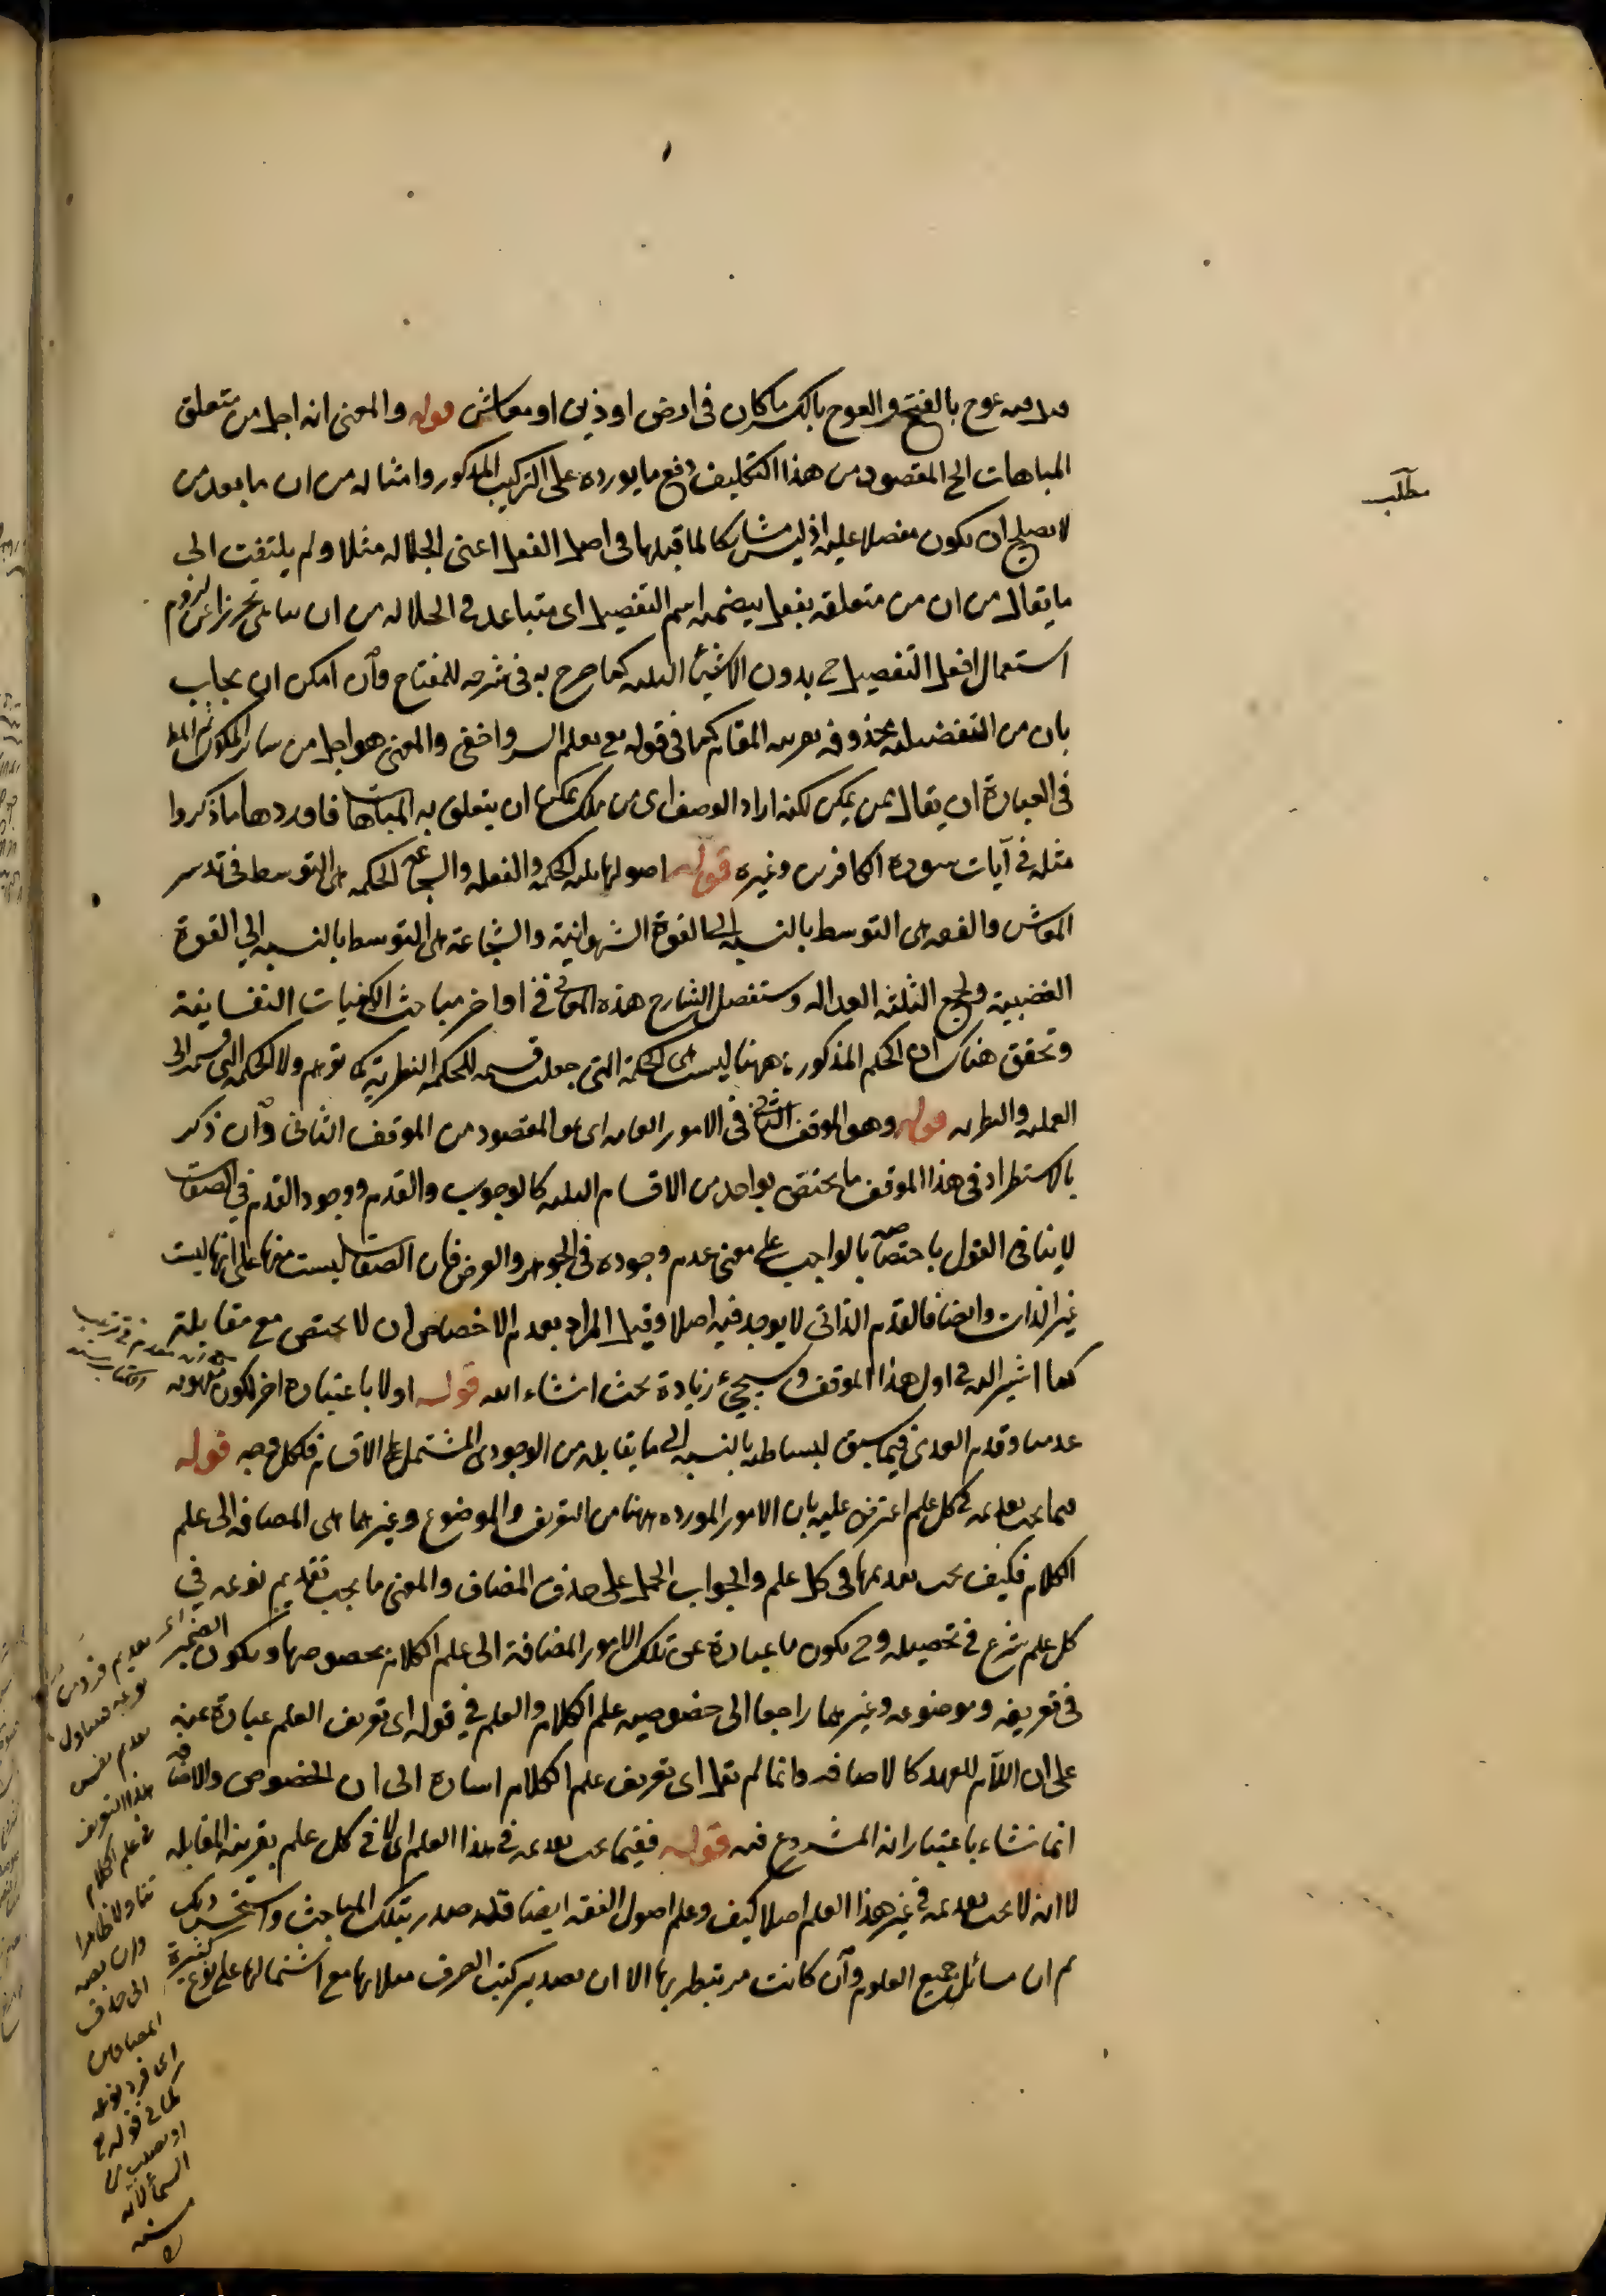 عوج بالفتح والعوج بالكسر ما كان فى ارض او دين او معاش قوله والمعنى انه اجل من متعلق
المباهات الخ المقصود من هذا التكليف دفع ما يورده على التركيب المذكور وامثاله من ان ما بعد من
لا يصلح ان يكون مفضلا عليه اذ ليس مشاركا لما قبلها فى اصل الفعل اعنى الجلاله مثلا ولم يلتفت الى
ما يقال من ان من متعلقه بفعل يتضمنه اسم التفضيل اى متباعد فى الجلاله من ان تحرزا عن لزوم
استعمال افعل التفضيل ح بدون الاشياء الثلثه كما صرح به فى شرحه للمفتاح وان امكن ان يجاب
بان من التفضيليه محذوفه بقرينه المقام كما فى قوله تع يعلم السر واخفى والمعنى هو اجل من سائر
فى العبارة ان يقال ممن يمكن لكنه اراد الوصف اى من ملك يمكن ان يتعلق به المباهات فاورد ها ما ذكروا
مثله فى آيات سورة الكافرين وغيره قوله اصولها ثلثه الحكمه والعفه والشجاعه الحكمه هى التوسط فى تدبير
المعاش والعفه هى التوسط بالنسبه الى القوة الشهوانية والشجاعة هى التوسط بالنسبه الى القوة
الغضبية وجمع الثلثه العداله وستفصل الشارح هذه المعانى فى اواخر مباحث الكيفيات النفسانية
وتحقق هناك ان الحكمه المذكورة ههنا ليست هى الحكمة التى جعلت قسيمه للحكمه النظرية كما توهم ولا الحكمه التى قسمه الى
العمليه والنظريه قوله وهو الموقف الثانى فى الامور العامه اى هو المقصود من الموقف الثانى وان ذكر
بالاستطراد فى هذا الموقف ما يختص بواحد من الاقسام الثلثه كالوجوب والقدم ووجود القدم فى الصفات
لا ينافى القول باختصاصه بالواجب على معنى عدم وجوده فى الجوهر والعرض فان الصفات ليست منها على انها ليست
غير الذات وايضا فالقدم الذاتى لا يوجد فيه اصلا وقيل المراد بعدم الاختصاص ان لا يختص مع مقابله
كما اشير اليه فى اول هذا الموقف وسيجئ زيادة بحث انشاء الله قوله اولا باعتبار اخر لكون مفهومه
عدميا وقدم العدمى فيما سبق لبساطته بالنسبه الى ما يقابله من الوجودى المشتمل على الاقسام فلكل وجه قوله
فيما يجب تقديمه فى كل علم اعترض عليه بان الامور المورده ههنا من التعريف والموضوع وغيرهما هى المضافه الى علم
الكلام فكيف يجب تقديمها فى كل علم والجواب الحمل على حذف المضاف والمعنى ما يجب تقديم نوعه فى
كل علم شرع فى تحصيله وح يكون ما عبارة عن تلك الامور المضافة الى علم الكلام بخصوصها ويكون الضمير
فى تعريفه وموضوعه وغيرهما راجعا الى خصوصيه علم الكلام والعلم فى قوله اى تعريف العلم عبارة عنه
على ان اللام للعهد كالاضافه وانما لم يقل اى تعريف علم الكلام اشاره الى ان الخصوص والاضافه
انما نشاء باعتبار انه المشروع فيه قوله ففيما يجب تقديمه فى هذا العلم اى لا فى كل علم بقرينه المقابله
لا انه لا يجب تقديمه فى غير هذا العلم اصلا كيف وعلم اصول الفقه ايضا قد صدر بتلك المباحث واستحسن ذلك
ثم ان مسائل جميع العلوم وان كانت مرتبطه بها الا ان تصدير كتب الصرف مثلا بها مع اشتمالها على نوع كثيرة
مطلب
اى تقديم فرد من
نوعه
تقديم نفس
هذا التعريف
فى علم الكلام
تناولا ظاهرا
الى حذف
المضافين
اى فرد نوعه
كما فى قوله تع
او كصيب من
السماء
منه